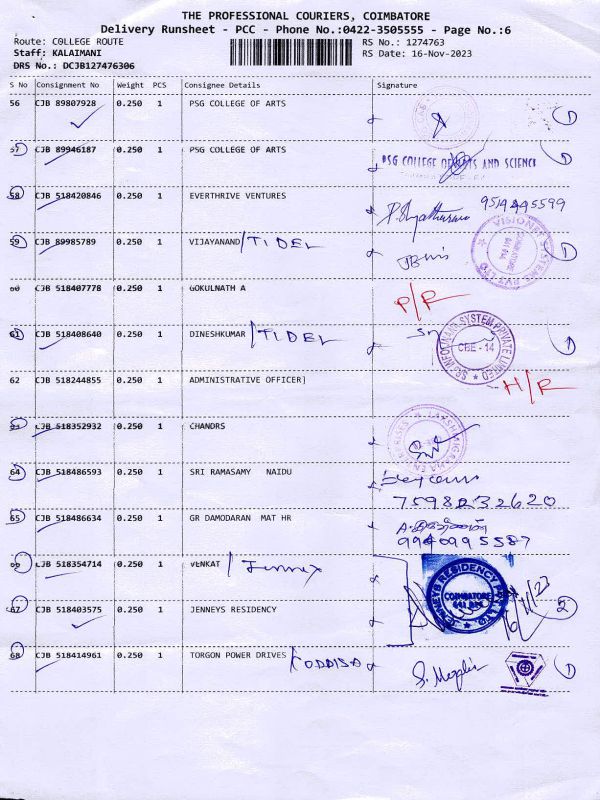 THE PROFESSIONAL COURIERS, COIMBATORE
Delivery Runsheet - PCC - Phone No.:0422-3505555 - Page No.:6
Route: COLLEGE ROUTE
Staff: KALAIMANI
DRS No.: DCJB127476306
RS No.: 1274763
RS Date: 16-Nov-2023
S No Consignment No Weight PCS Consignee Details Signature
56 CJB 89807928 0.250 1 PSG COLLEGE OF ARTS 1
57 CJB 89946187 0.250 1 PSG COLLEGE OF ARTS 1
PSG COLLEGE OF ARTS AND SCIENCE
58 CJB 518420846 0.250 1 EVERTHRIVE VENTURES 9514495599
59 CJB 89985789 0.250 1 VIJAYANAND / TIDEL 1
VISIONET SYSTEMS PVT LTD
60 CJB 518407778 0.250 1 GOKULNATH A P/R
61 CJB 518408640 0.250 1 DINESHKUMAR / TIDEL 1
CBE - 14
62 CJB 518244855 0.250 1 ADMINISTRATIVE OFFICER] H/R
63 CJB 518352932 0.250 1 CHANDRS
64 CJB 518486593 0.250 1 SRI RAMASAMY NAIDU
7598232620
65 CJB 518486634 0.250 1 GR DAMODARAN MAT HR
9940995587
66 CJB 518354714 0.250 1 VENKAT / Jenney
JENNEYS RESIDENCY PVT LTD
COIMBATORE
67 CJB 518403575 0.250 1 JENNEYS RESIDENCY 16/11/23 2
68 CJB 518414961 0.250 1 TORGON POWER DRIVES 1